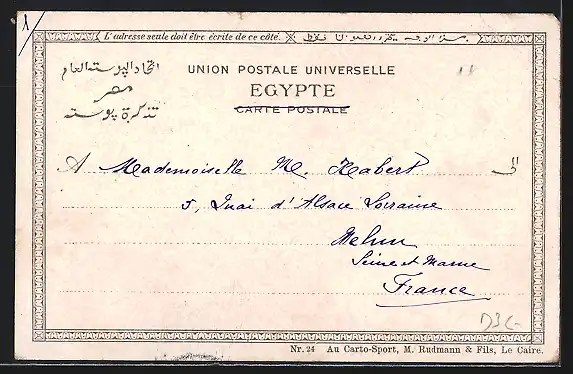 1/
L'adresse seule doit être écrite de ce côté.
UNION POSTALE UNIVERSELLE
اتحاد البوسته العام
EGYPTE
مصر
CARTE POSTALE
تذكرة بوسته
A Mademoiselle M. Habert
الى
5, Quai d'Alsace Lorraine
Melun
Seine et Marne
France
Nr. 24 Au Carto-Sport, M. Rudmann & Fils, Le Caire.